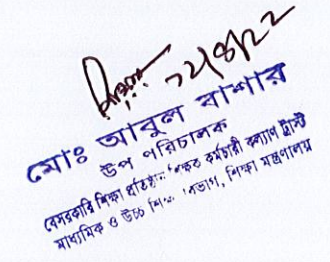 ২৮/৪/২২
মোঃ আবুল বাশার
উপ পরিচালক
বেসরকারি শিক্ষা প্রতিষ্ঠান শিক্ষক কর্মচারী কল্যাণ ট্রাস্ট
মাধ্যমিক ও উচ্চ শিক্ষা বিভাগ, শিক্ষা মন্ত্রণালয়